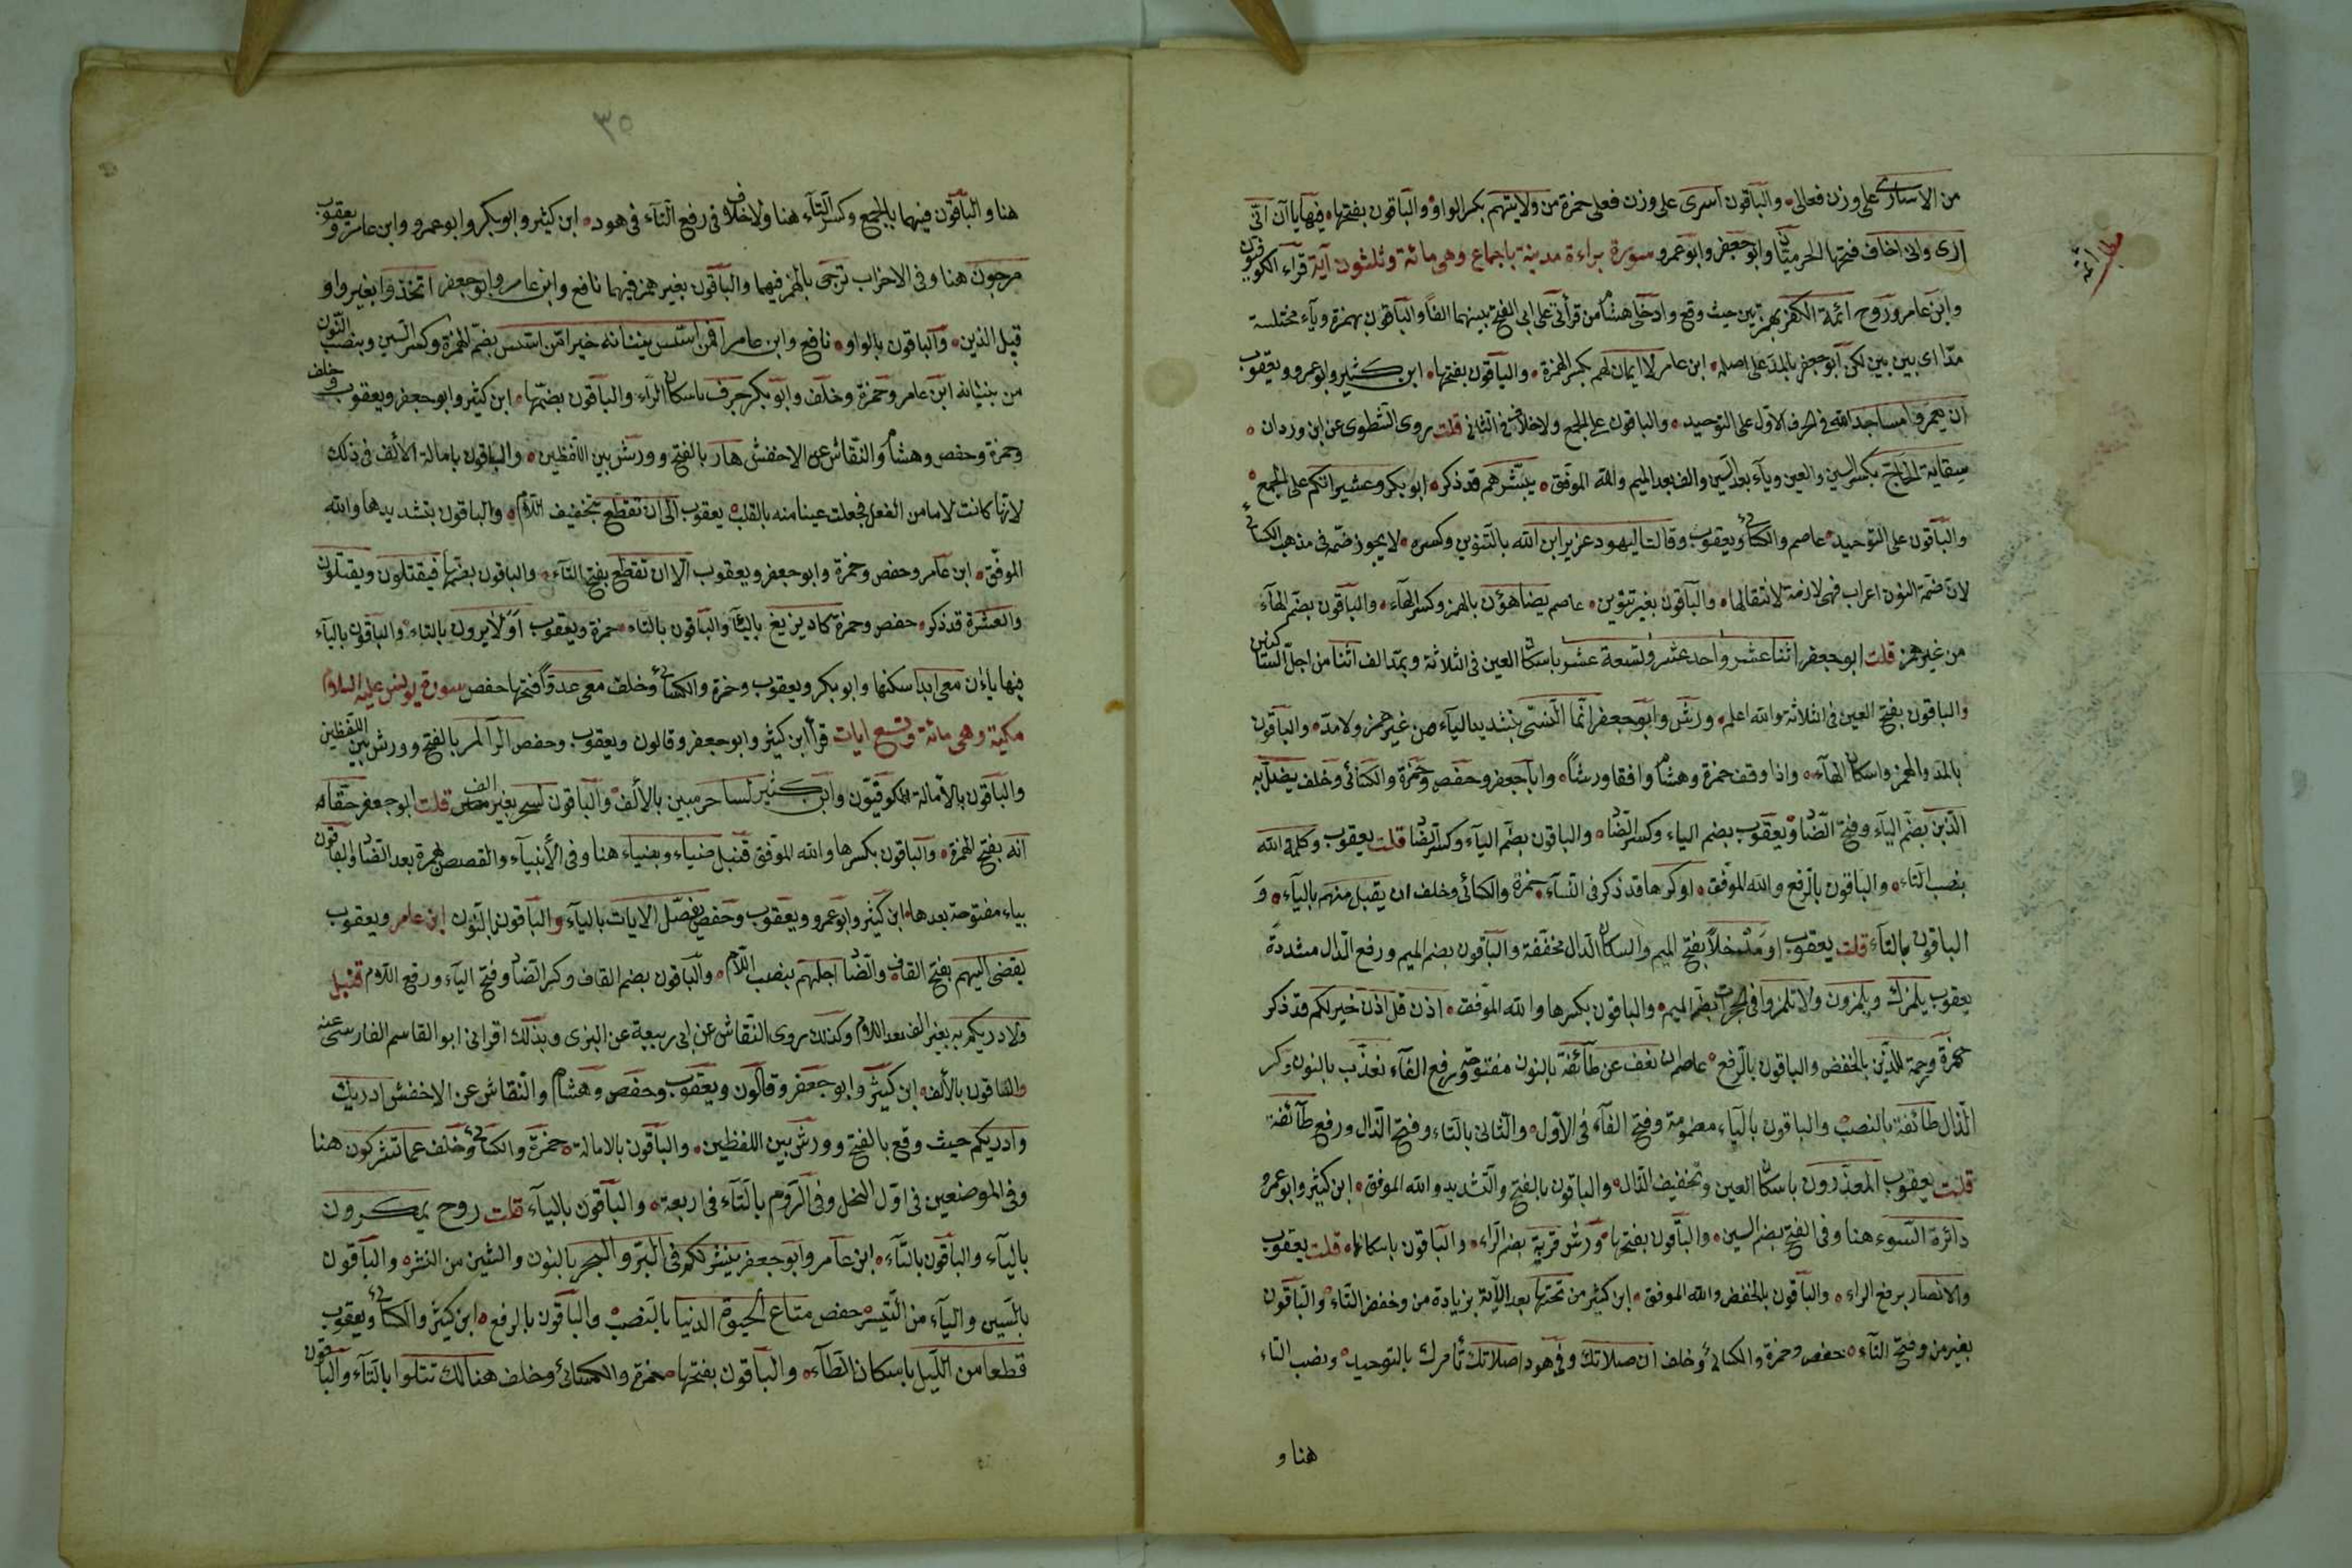 من الاسارى على وزن فعالى والباقون اسرى على وزن فعلى حمزة من ولايتهم بكسر الواو والباقون بفتحها فيها يا آن انّى
ارى وانى اخاف فتحها الحرميّان وابو جعفر وابو عمرو سورة براءة مدنية باجماع وهى مائة وثلثون آية قراء الكوفيون
وابن عامر وروح ائمة الكفر بهمزتين حيث وقع وادخل هشام من قرأتى على ابى الفتح بينهما الفا والباقون بهمزة وياء مختلسة
مدّا اى بين بين لكن ابو جعفر بالمد على اصله ابن عامر لا ايمان لهم بكسر الهمزة والباقون بفتحها ابن كثير وابو عمرو ويعقوب
ان يعمروا مساجد الله فى الحرف الاول على التوحيد والباقون على الجمع ولا خلاف فى الثانى قلت روى الشطوى عن ابن وردان
سقاية الحاج بكسر السين والعين وياء بعد السين والف بعد الميم والله الموفق يبشرهم قد ذكر ابو بكر وعشيراتكم على الجمع
والباقون على التوحيد عاصم والكسائى ويعقوب وقالت اليهود عزير ابن الله بالتنوين وكسره لا يجوز ضمه فى مذهب الكسائى
لان ضمة النون اعراب فهى لازمة لانتقالها والباقون بغير تنوين عاصم يضاهؤن بالهمز وكسر الهاء والباقون بضم الهاء
من غير همز قلت ابو جعفر اثنا عشر واحد عشر وتسعة عشر باسكان العين فى الثلاثة وبمد الف اثنا من اجل الساكنين
والباقون بفتح العين فى الثلاثة والله اعلم ورش وابو جعفر انما النسىّ بتشديد الياء من غير همز ولا مد والباقون
بالمد والهمز واسكان الهاء واذا وقف حمزة وهشام وافقا ورشا وابا جعفر وحفص وحمزة والكسائى وخلف يضل به
الذين بضم الياء وفتح الضاد ويعقوب بضم الياء وكسر الضاد والباقون بضم الياء وكسر الضاد قلت يعقوب وكلمة الله
بنصب التاء والباقون بالرفع والله الموفق او كرها قد ذكر فى النساء حمزة والكسائى وخلف ان يقبل منهم بالياء و
الباقون بالتاء قلت يعقوب او مدخلاً بفتح الميم واسكان الدال مخففة والباقون بضم الميم ورفع الدال مشددة
يعقوب يلمزك ويلمزون ولا تلمزوا فى الحجرات بضم الميم والباقون بكسرها والله الموفق اذن قل اذن خير لكم قد ذكر
حمزة ورحمة للذين بالخفض والباقون بالرفع عاصم ان نعف عن طائفة بالنون مفتوحة ورفع الفاء نعذب بالنون وكر
الذال طائفة بالنصب والباقون بالياء مضمومة وفتح الفاء فى الاول والثانى بالتاء وفتح الذال ورفع طائفة
قلت يعقوب المعذرون باسكان العين وتخفيف الذال والباقون بالفتح والتشديد والله الموفق ابن كثير وابو عمرو
دائرة السوء هنا وفى الفتح بضم السين والباقون بفتحها ورش قربة بضم الراء والباقون باسكانها قلت يعقوب
والانصار برفع الراء والباقون بالخفض والله الموفق ابن كثير من تحتها بعد الآية بزيادة من وخفض التاء والباقون
بغير من وفتح التاء حفص وحمزة والكسائى وخلف ان صلاتك وفى هود اصلاتك تأمرك بالتوحيد ونصب التاء
هنا و
٣٥
هنا والباقون فيهما بالجمع وكسر التاء هنا ولا خلاف فى رفع التاء فى هود ابن كثير وابو بكر وابو عمرو وابن عامر ويعقوب
مرجون هنا وفى الاحزاب ترجى بالهمز فيهما والباقون بغير همز فيهما نافع وابن عامر وابو جعفر اتخذوا بغير واو
قبل الذين والباقون بالواو نافع وابن عامر افمن اسس بنيانه خير امّن اسس بضم الهمزة وكسر السين وبنصب النون
من بنيانه ابن عامر وحمزة وخلف وابو بكر جرف باسكان الراء والباقون بضمها ابن كثير وابو جعفر ويعقوب وخلف
وحمزة وحفص وهشام والنقاش عن الاخفش هار بالفتح وورش بين اللفظين والباقون بامالة الالف فى ذلك
لانها كانت لاما من الفعل فجعلت عينا منه بالقلب يعقوب الى ان تقطع بتخفيف اللام والباقون بتشديدها والله
الموفق ابن عامر وحفص وحمزة وابو جعفر ويعقوب الا ان تقطع بفتح التاء والباقون بضمها فيقتلون ويقتلون
والعشرة قد ذكر حفص وحمزة كاد يزيغ بالياء والباقون بالتاء حمزة ويعقوب اولا يرون بالتاء والباقون بالياء
فيها ياءان معى ابدا سكنها وابو بكر ويعقوب وحمزة والكسائى وخلف معى عدوا فتحها حفص سورة يونس عليه السلام
مكية وهى مائة وتسع ايات قرأ ابن كثير وابو جعفر وقالون ويعقوب وحفص الر المر بالفتح وورش بين اللفظين
والباقون بالامالة الكوفيون وابن كثير لساحر مبين بالألف والباقون لسحر بغير الف قلت ابو جعفر حقا
انه بفتح الهمزة والباقون بكسرها والله الموفق قنبل ضياء وبضياء هنا وفى الأنبياء والقصص بهمزة بعد الضاد والباقون
بياء مفتوحة بعدها ابن كثير وابو عمرو ويعقوب وحفص يفصل الايات بالياء والباقون بالنون ابن عامر ويعقوب
يقضى اليهم بفتح القاف والضاد اجلهم بنصب اللام والباقون بضم القاف وكسر الضاد وفتح الياء ورفع اللام قنبل
ولادريكم به بغير الف بعد اللام وكذلك روى النقاش عن ابى ربيعة عن البزى وبذلك اقرانى ابو القاسم الفارسى عنه
والباقون بالألف ابن كثير وابو جعفر وقالون ويعقوب وحفص وهشام والنقاش عن الاخفش ادريك
وادريكم حيث وقع بالفتح وورش بين اللفظين والباقون بالامالة حمزة والكسائى وخلف عما تشركون هنا
وفى الموضعين فى اول النحل وفى الروم بالتاء فى اربعة والباقون بالياء قلت روح يمكرون
بالياء والباقون بالتاء ابن عامر وابو جعفر ينشركم فى البر والبحر بالنون والشين من النشر والباقون
بالسين والياء من التيسر حفص متاع الحيوة الدنيا بالنصب والباقون بالرفع ابن كثير والكسائى ويعقوب
قطعا من الليل باسكان الطاء والباقون بفتحها حمزة والكسائى وخلف هنالك تتلوا بالتاء والباقون